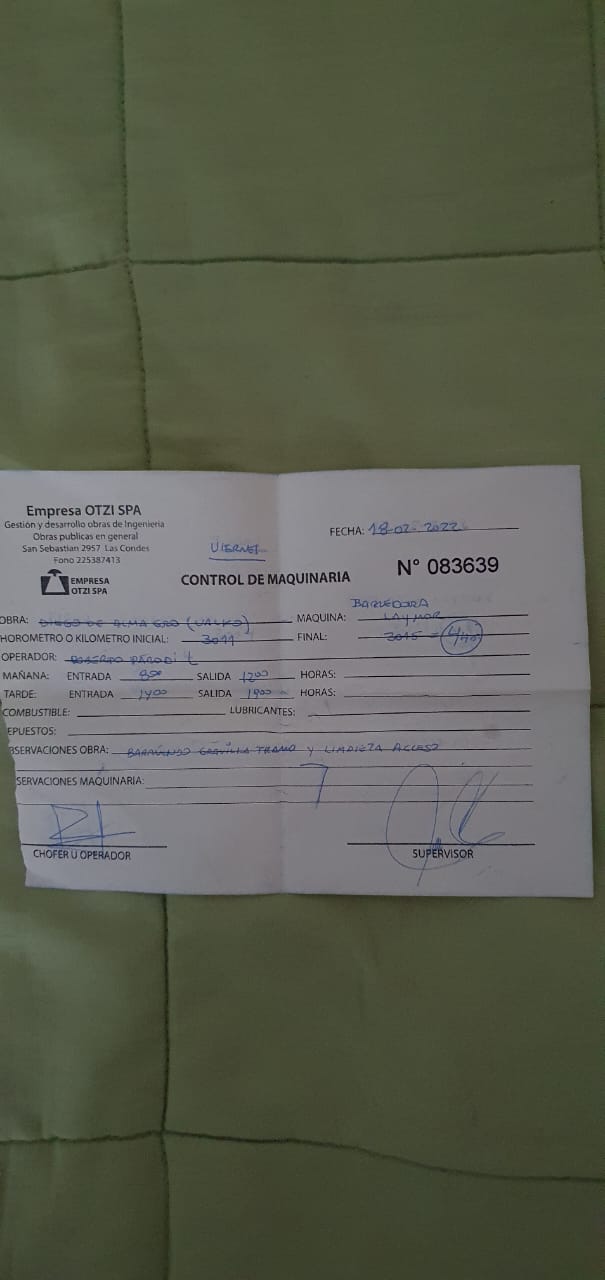 Empresa OTZI SPA
Gestión y desarrollo obras de Ingenieria
Obras publicas en general
San Sebastian 2957 Las Condes
Fono 225387413
EMPRESA
OTZI SPA
VIERNES
FECHA: 18-02-2022
CONTROL DE MAQUINARIA
N° 083639
BARREDORA
OBRA: DIEGO DE ALMAGRO (VALKO) MAQUINA: LAYMOR
HOROMETRO O KILOMETRO INICIAL: 3011 FINAL: 3015 =
OPERADOR: RODERIDO PARODI L
MAÑANA: ENTRADA 800 SALIDA 1200 HORAS:
TARDE: ENTRADA 1400 SALIDA 1900 HORAS:
COMBUSTIBLE: LUBRICANTES:
EPUESTOS:
BSERVACIONES OBRA: BARRIENDO GRAVILLA TRAMO Y LIMPIEZA ACCESO
SERVACIONES MAQUINARIA:
CHOFER U OPERADOR SUPERVISOR